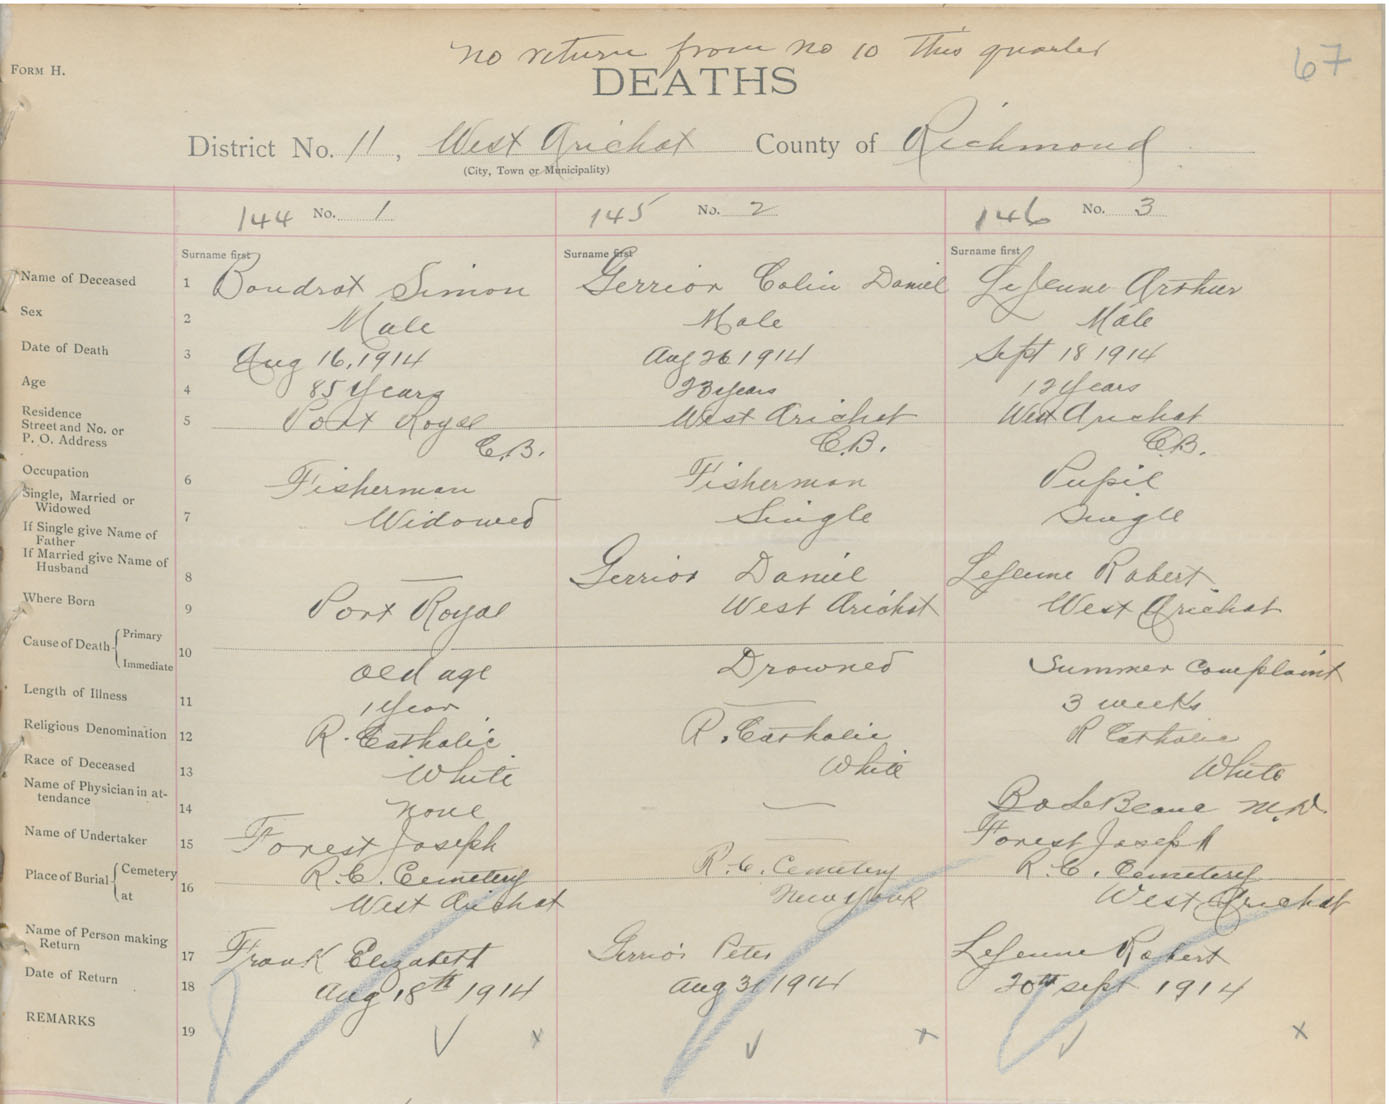 no return from no 10 this quarter
67
FORM H.
DEATHS
District No. 11, West Arichat County of Richmond
(City, Town or Municipality)
144 No. 1 145 No. 2 146 No. 3
Surname first Surname first Surname first
Name of Deceased 1 Boudrot Simon Gerrior Colin Daniel LeJeune Arthur
Sex 2 Male Male Male
Date of Death 3 Aug 16, 1914 Aug 26 1914 Sept 18 1914
Age 4 85 Years 23 years 12 Years
Residence Street and No. or P. O. Address 5 Port Royal West Arichat West Arichat
C.B. C.B. C.B.
Occupation 6 Fisherman Fisherman Pupil
Single, Married or Widowed 7 Widowed Single Single
If Single give Name of Father
If Married give Name of Husband 8 — Gerrior Daniel LeJeune Robert
Where Born 9 Port Royal West Arichat West Arichat
Cause of Death { Primary Immediate 10 old age Drowned Summer Complaint
Length of Illness 11 1 Year — 3 weeks
Religious Denomination 12 R. Catholic R. Catholic R Catholic
Race of Deceased 13 White White White
Name of Physician in attendance 14 none — LeBlanc M.D.
Name of Undertaker 15 Forest Joseph — Forest Joseph
Place of Burial { Cemetery at 16 R.C. Cemetery R.C. Cemetery R.C. Cemetery
West Arichat New York West Arichat
Name of Person making Return 17 Frank Elizabeth Gerrior Peter LeJeune Robert
Date of Return 18 Aug 18th 1914 Aug 31 1914 20th sept 1914
REMARKS 19